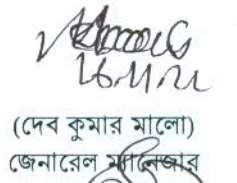 26.11.21
(দেব কুমার মালো)
জেনারেল ম্যানেজার